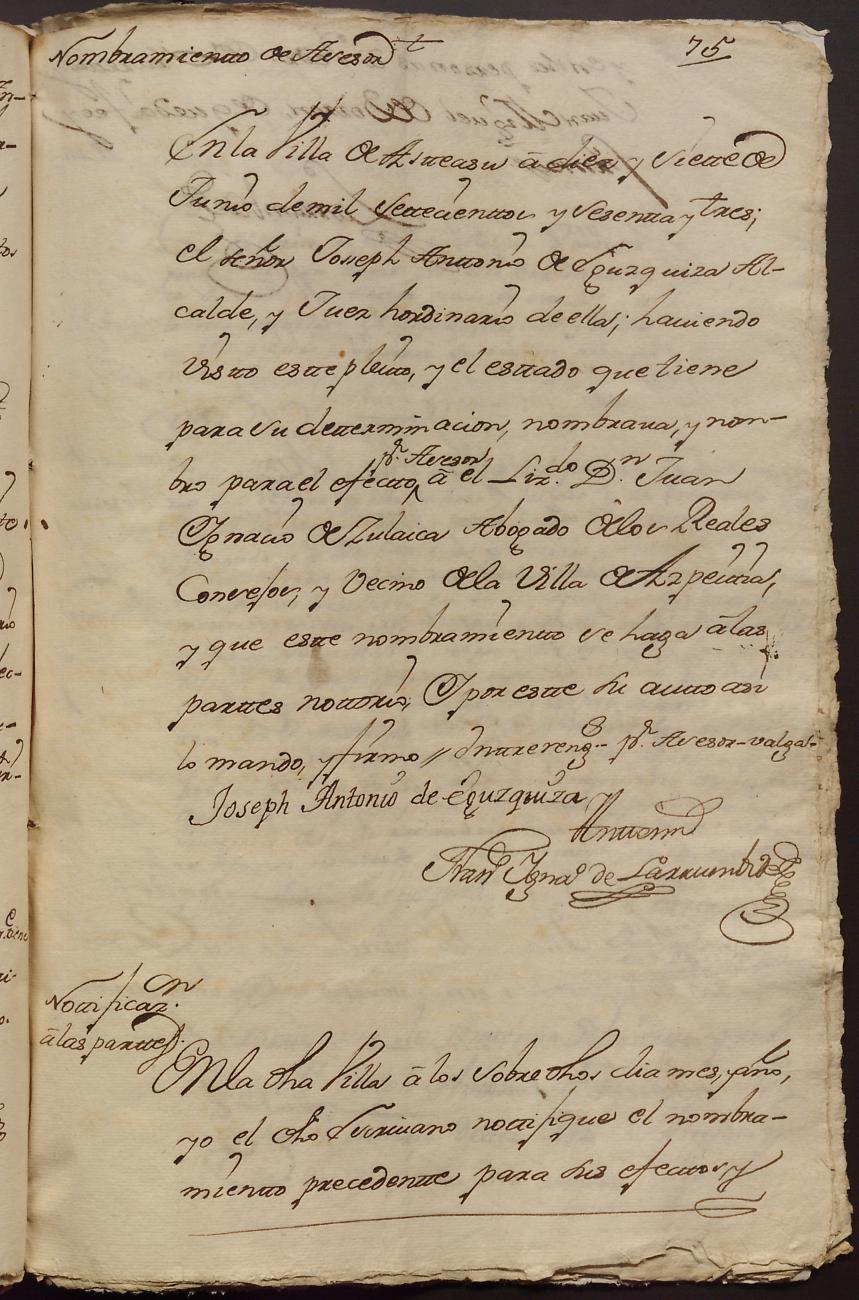 Nombramientto de Asesor
75
En la Villa de Asteasu â diez y siette de
Junio de mil settecienttos y sesentta y tres;
el señor Joseph Anttonio de Eguzquiza Al-
calde, y Juez hordinario de ella; haviendo
visto este pleitto, y el esttado que tiene
para su determinacion, nombrava, y nom-
pr. Asesor
bro para el efectto, â el Liz.do D.n Juan
Ygnacio de Zulaica Abogado de los Reales
Consejos, y Vecino de la Villa de Azpeittia,
y que este nombramientto se haga â las
parttes nottorio, Y por este su autto asi
lo mando, y firmo // Enttre reng.s pr. Asesor-valga-
Joseph Antonio de Eguzquiza
Antte mi
Fran.co Ygna.o de Larrumbide
Nottificaz.n
â las parttes.
En la dha Villa â los sobre dhos dia mes, y año,
yo el dho Escrivano nottifique el nombra-
mientto precedentte para sus efecttos y